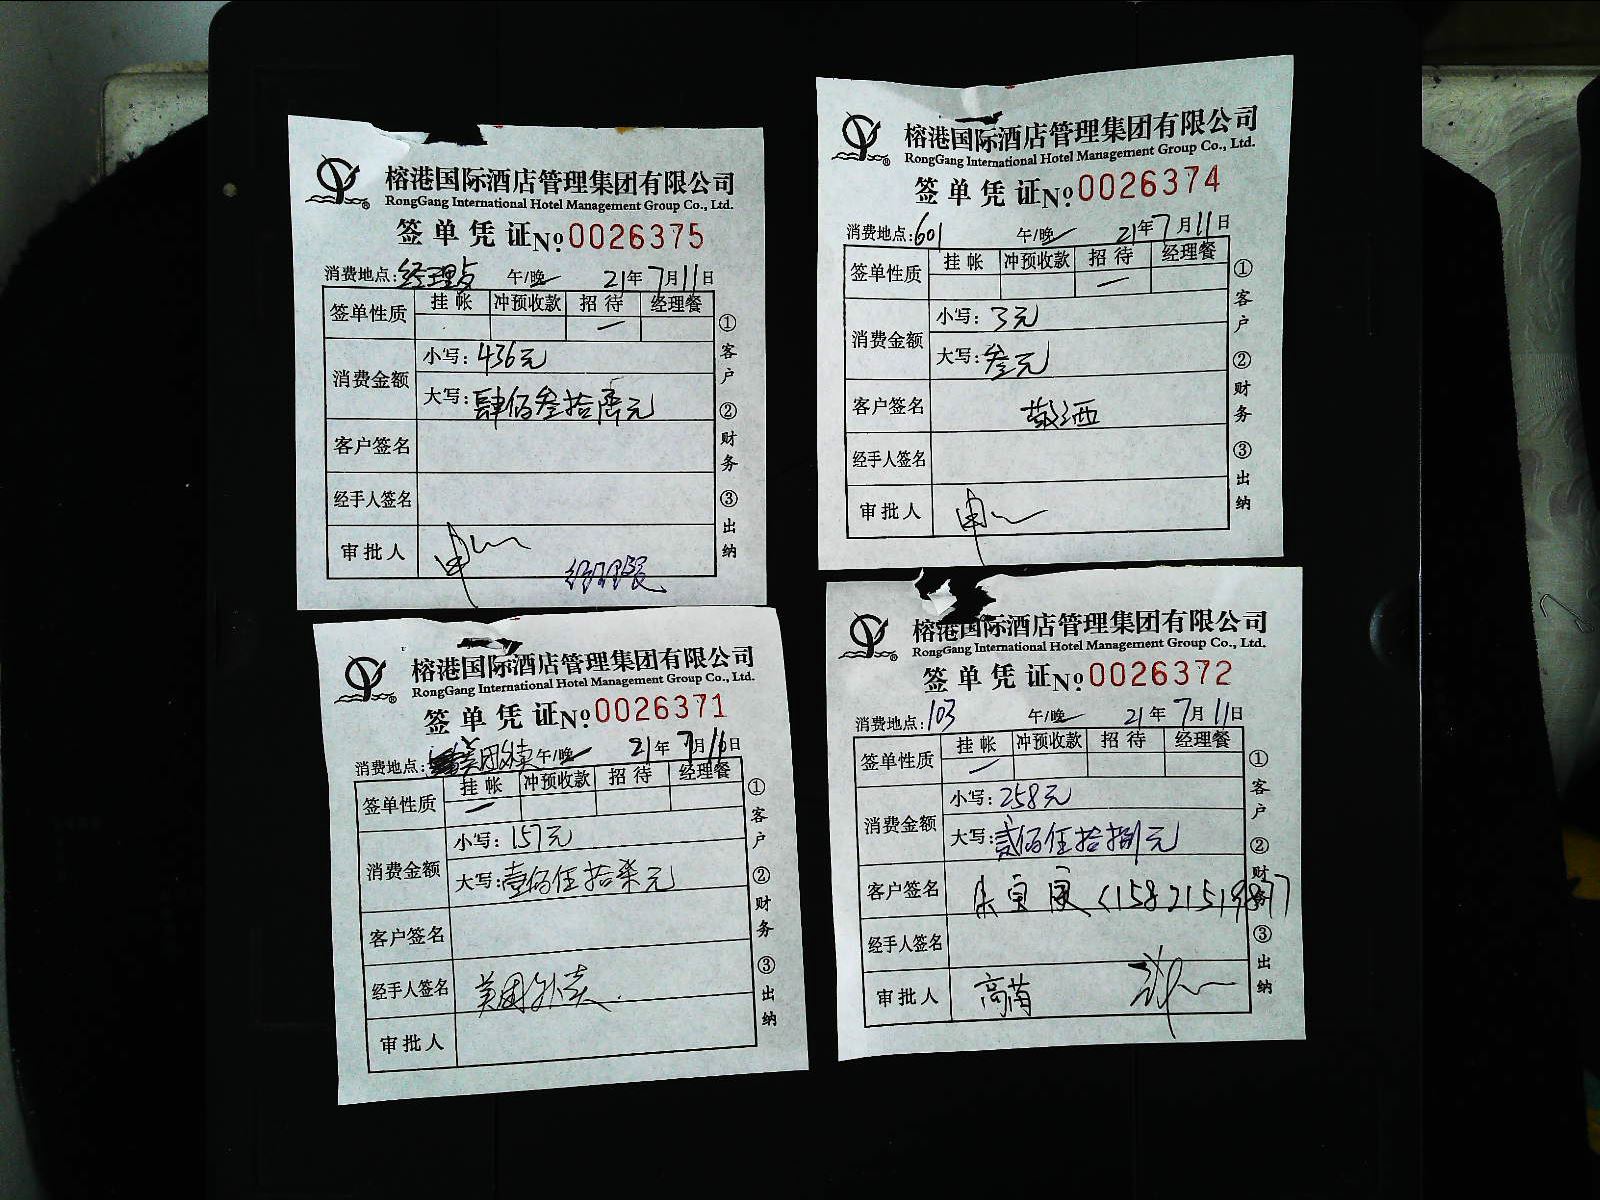 榕港国际酒店管理集团有限公司
RongGang International Hotel Management Group Co., Ltd.
签单凭证 No. 0026375
消费地点: 午/晚 21年7月11日
签单性质 挂帐 冲预收款 招待 经理餐
一
消费金额 小写: 436元
大写: 肆佰叁拾陆元
客户签名
经手人签名
审批人
经理餐
①客户 ②财务 ③出纳
榕港国际酒店管理集团有限公司
RongGang International Hotel Management Group Co., Ltd.
签单凭证 No. 0026374
消费地点: 601 午/晚 21年7月11日
签单性质 挂帐 冲预收款 招待 经理餐
一
消费金额 小写: 3元
大写: 叁元
客户签名 敬酒
经手人签名
审批人
①客户 ②财务 ③出纳
榕港国际酒店管理集团有限公司
RongGang International Hotel Management Group Co., Ltd.
签单凭证 No. 0026371
消费地点: 美团外卖 午/晚 21年7月16日
签单性质 挂帐 冲预收款 招待 经理餐
一
消费金额 小写: 157元
大写: 壹佰伍拾柒元
客户签名
经手人签名 美团外卖
审批人
①客户 ②财务 ③出纳
榕港国际酒店管理集团有限公司
RongGang International Hotel Management Group Co., Ltd.
签单凭证 No. 0026372
消费地点: 103 午/晚 21年7月11日
签单性质 挂帐 冲预收款 招待 经理餐
一
消费金额 小写: 258元
大写: 贰佰伍拾捌元
客户签名
经手人签名
审批人 高楠
①客户 ②财务 ③出纳